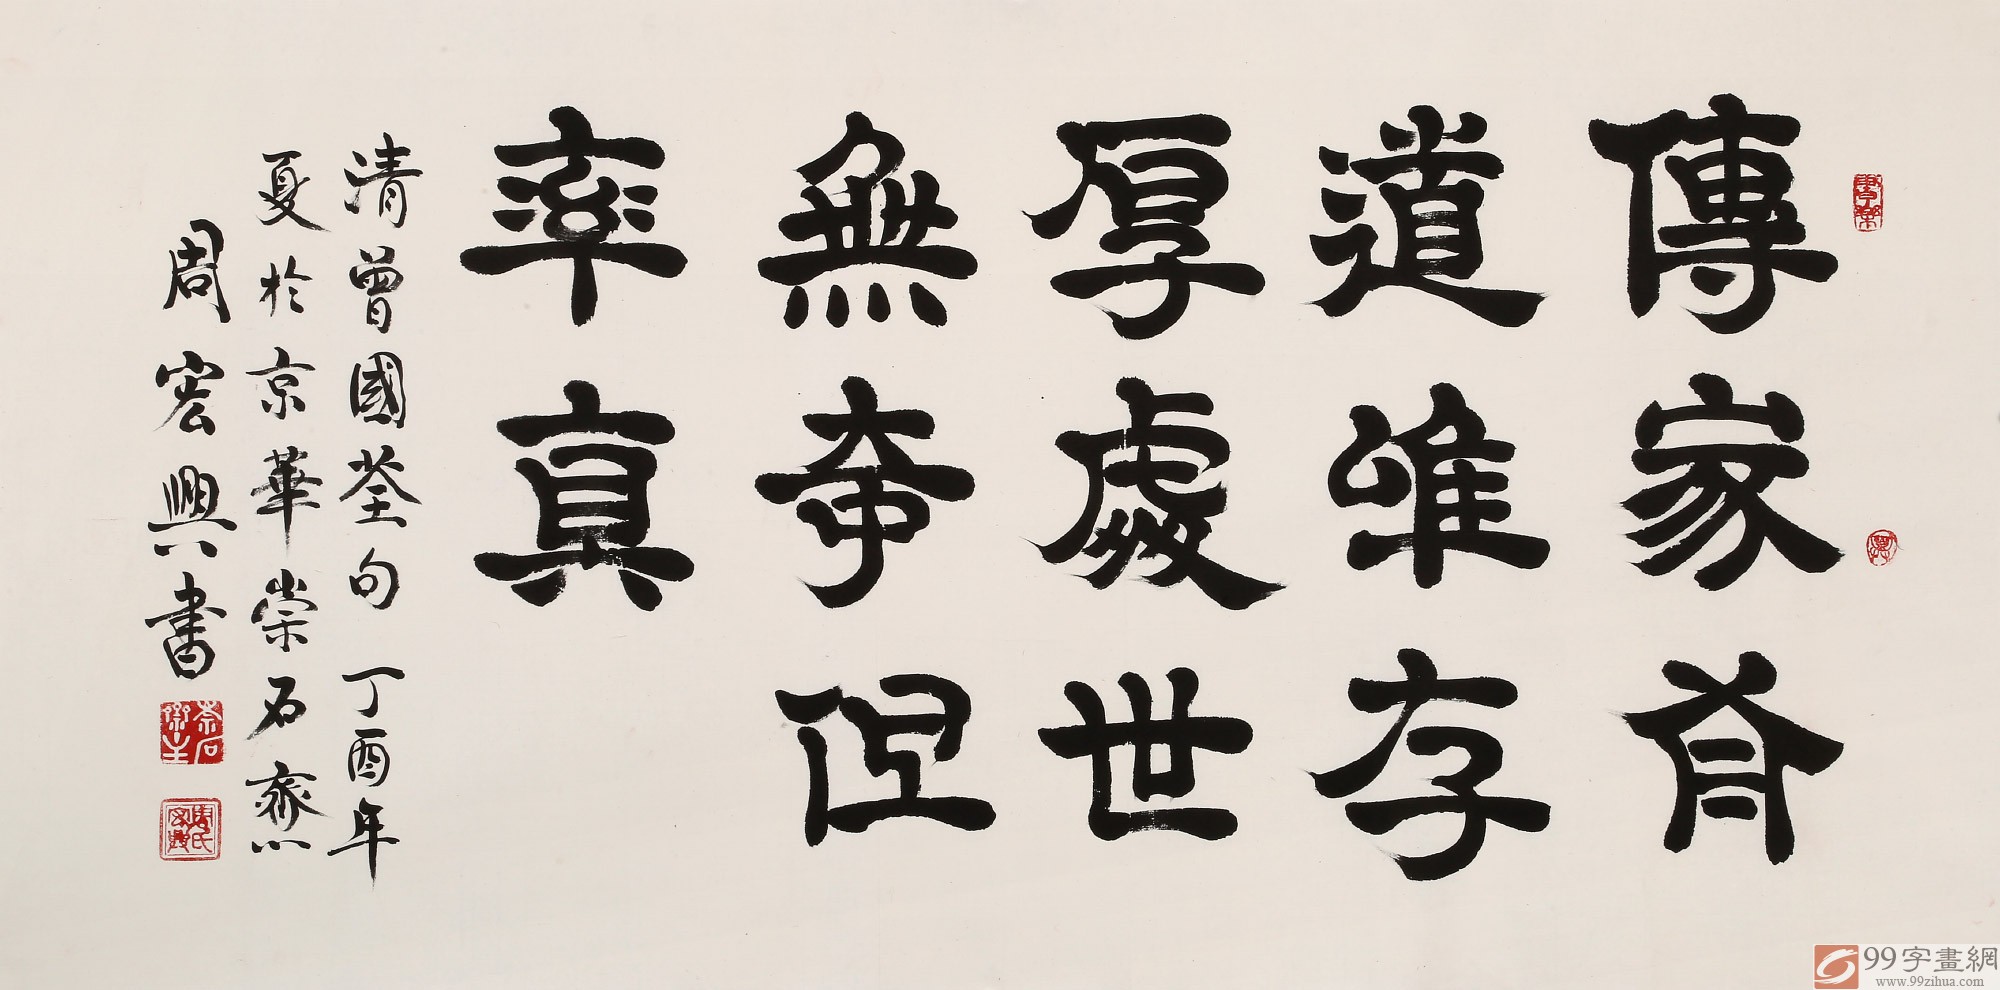 傳家有
道唯存
厚處世
無奇但
率真
清曾國荃句 丁酉年
夏於京華崇石齋
周宏興書
崇石齋主
周氏宏興
99字畫網
www.99zihua.com